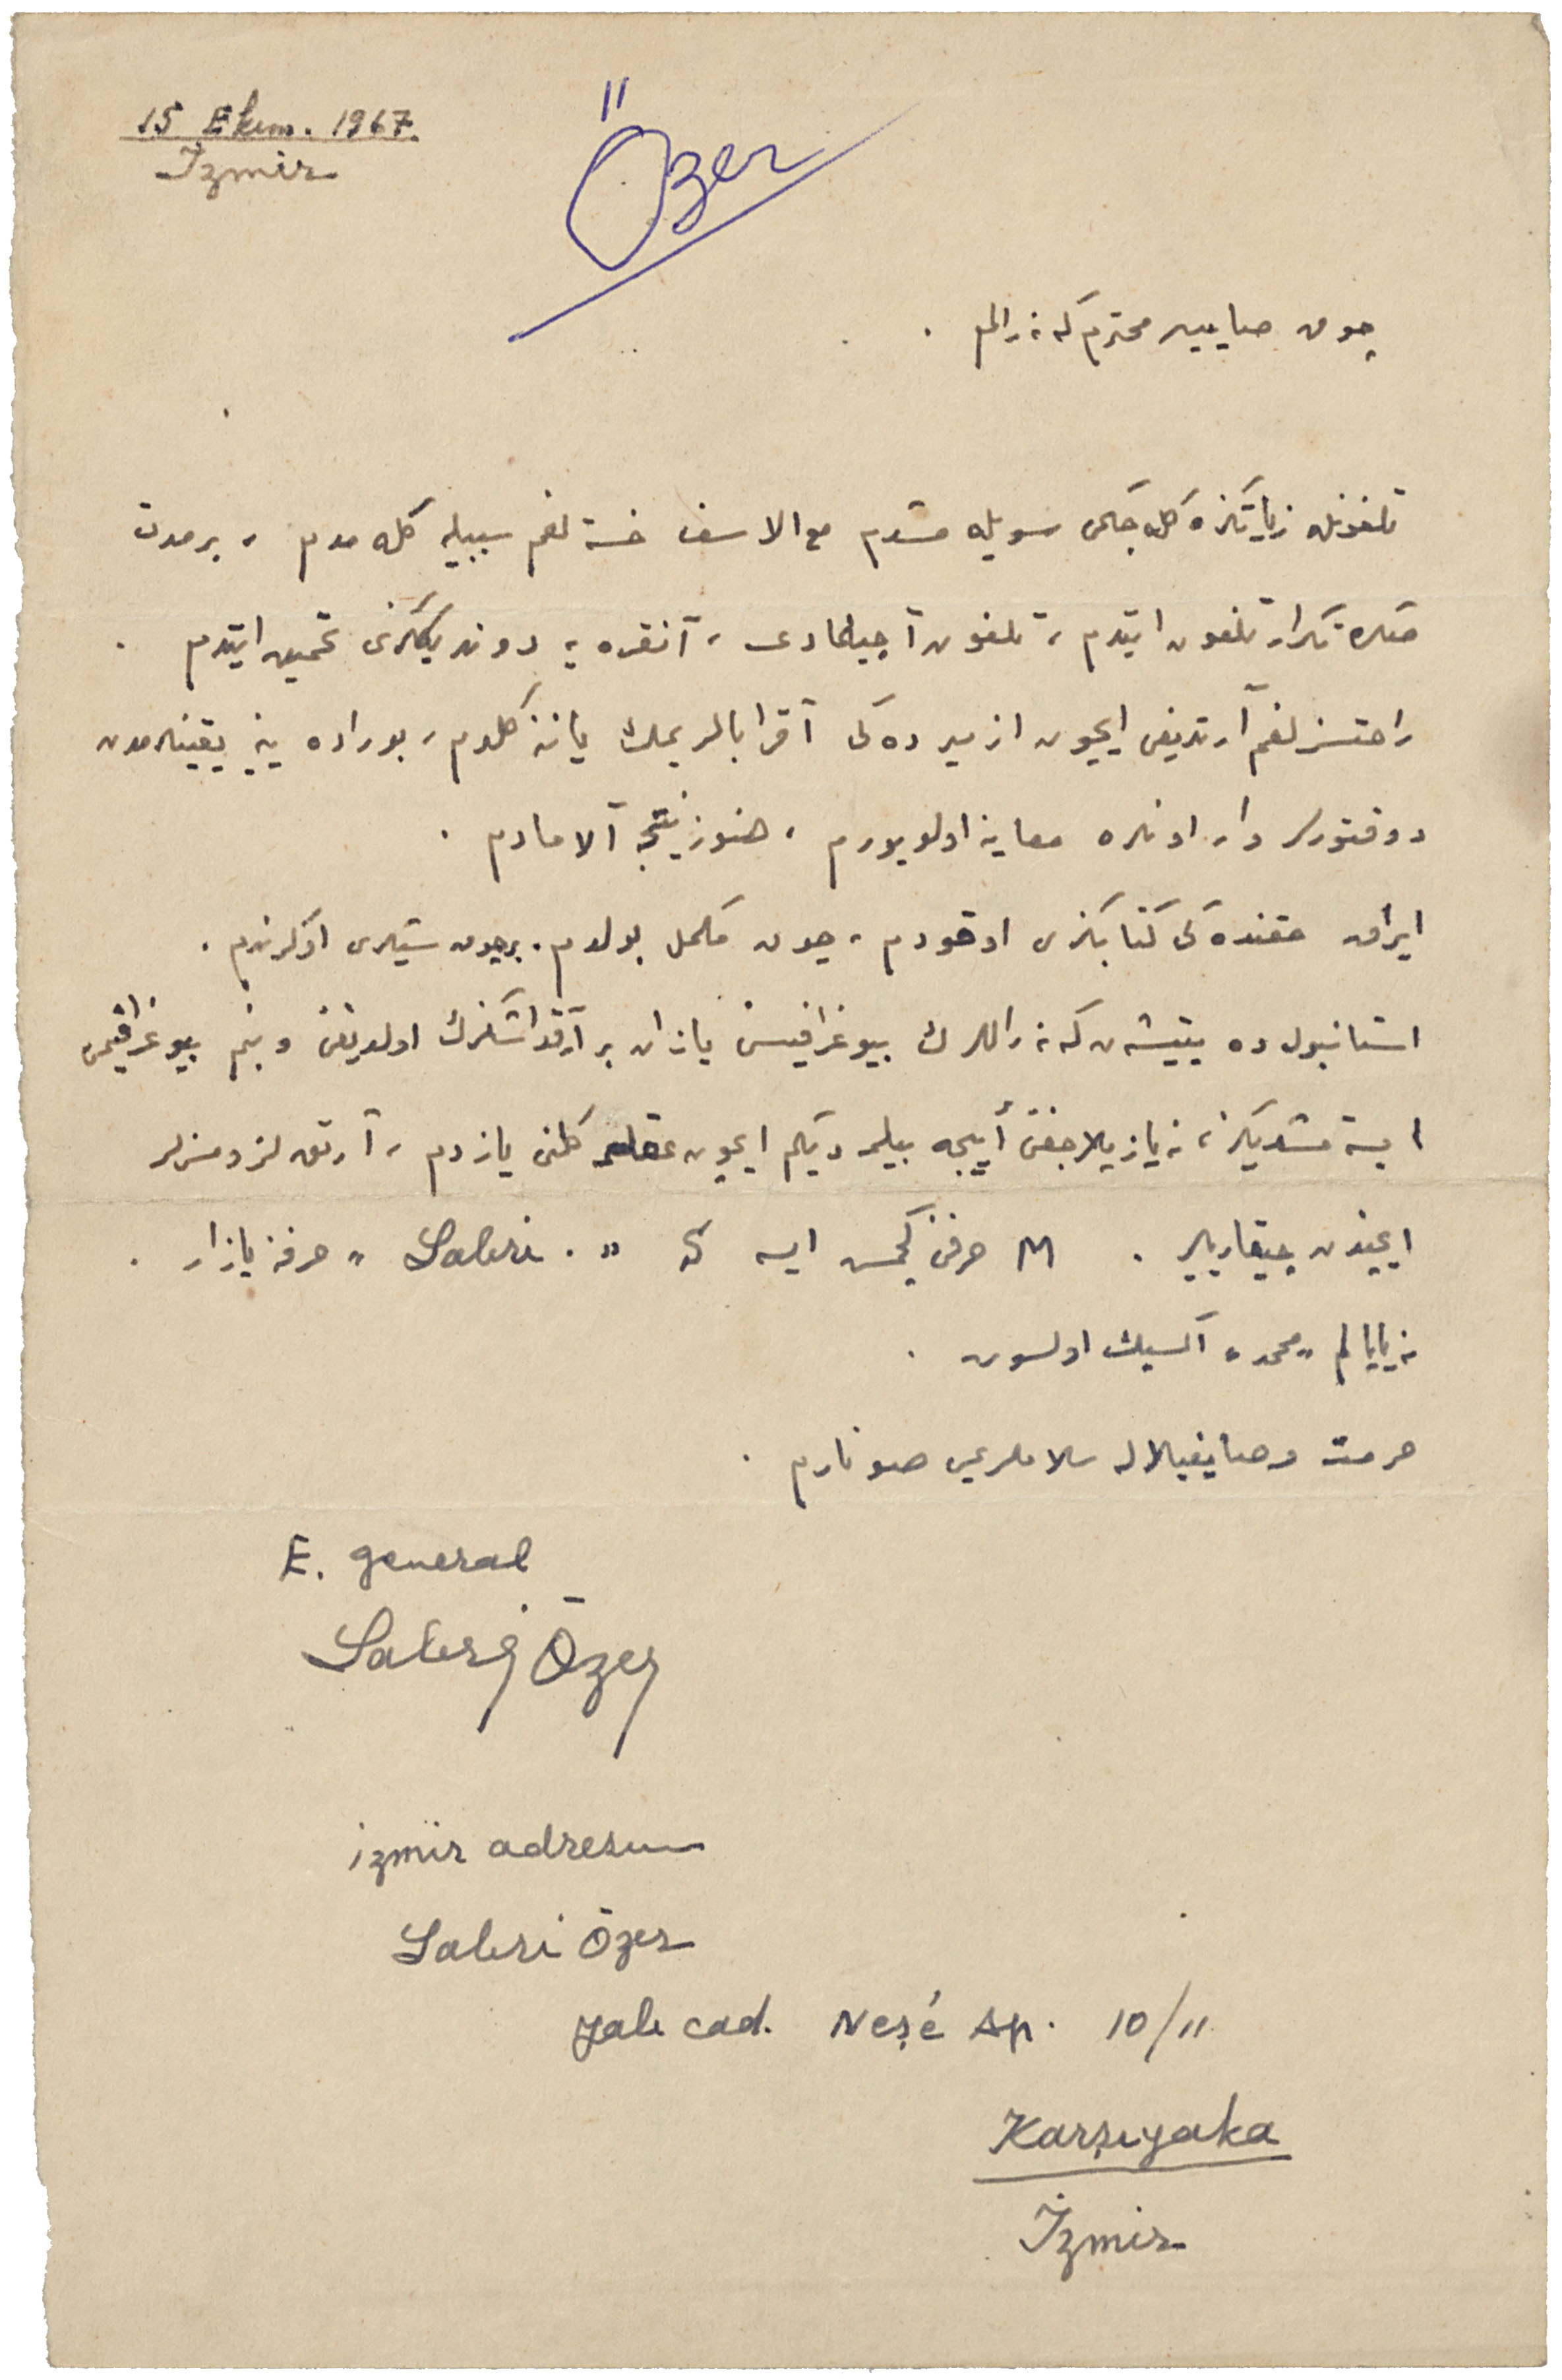 15 Ekim. 1967.
İzmir
Özer
چوق صایین محترم كه نه رالم .
تلفونله زیارتكزه كله جكمی سویله مشدم مع الاسف خسته لغم سببیله كله مدم ، بر مدت
صكره تكرار تلفون ایتدم ، تلفون آچیلمادی ، آنقره یه دوندیككزی تخمین ایتدم .
راحتسزلغم آرتدیغی ایچون ازمیر ده كی آقرابالریمك یاننه كلدم ، بوراده ینه یقینلرمدن
دوقتورلر وار اونلره معاینه اولویورم ، هنوز نتیجه آلامادم .
ایران حقنده كی كتابكزی اوقودم ، چوق مكمل بولدم . بر چوق شیلری اوكرندم .
استانبول ده یتیشن كه نه راللرك بیوغرافیسنی یازان بر آرقداشكزك اولدیغنی و بنم بیوغرافیمی
ایسته مشدیكز ، نه یازیلاجغنی أییجه بیلمدیكم ایچون عقلمه كلنی یازدم ، آرتق لزومسزلر
ایچیندن چیقاریلیر . M حرفی كیمسه ایسه كه " . Sabri " حرفنه یازار .
نه یاپالم " محمد " اكسیك اولسون .
حرمت و صایغیلارله سلاملریمی صونارم .
E. general
Sabri Özer
izmir adresim
Sabri Özer
Yalı cad. Neşé Ap. 10/11
Karşıyaka
İzmir